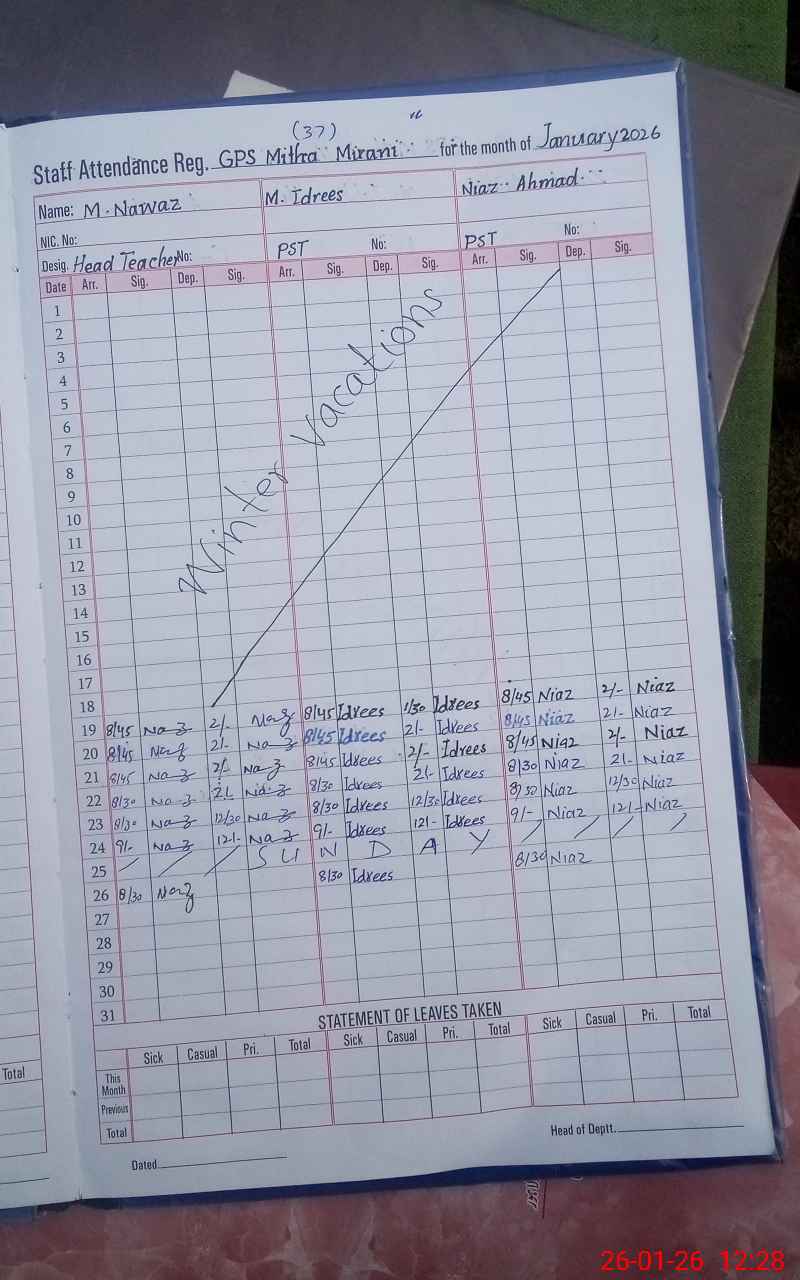 (37)
Staff Attendance Reg. GPS Mitha Mirani for the month of January 2026
Name: M. Nawaz M. Idrees Niaz Ahmad
NIC. No:
Desig. Head Teacher No: PST No: PST No:
Date Arr. Sig. Dep. Sig. Arr. Sig. Dep. Sig. Arr. Sig. Dep. Sig.
1
2
3
4
5
6
7
8
9
10
11
12
13
14
15
16
17
18
Winter vacations
19 8/45 Naz 2/- Naz 8/45 Idrees 1/30 Idrees 8/45 Niaz 2/- Niaz
20 8/45 Naz 2/- Naz 8/45 Idrees 2/- Idrees 8/45 Niaz 2/- Niaz
21 8/45 Naz 2/- Naz 8/45 Idrees 2/- Idrees 8/45 Niaz 2/- Niaz
22 8/30 Naz 2/- Naz 8/30 Idrees 2/- Idrees 8/30 Niaz 2/- Niaz
23 8/30 Naz 12/30 Naz 8/30 Idrees 12/30 Idrees 8/30 Niaz 12/30 Niaz
24 9/- Naz 12/- Naz 9/- Idrees 12/- Idrees 9/- Niaz 12/- Niaz
25 SUNDAY
26 8/30 Naz 8/30 Idrees 8/30 Niaz
27
28
29
30
31
STATEMENT OF LEAVES TAKEN
Sick Casual Pri. Total Sick Casual Pri. Total Sick Casual Pri. Total
This Month
Previous
Total
Total
Dated Head of Deptt.
26-01-26 12:28